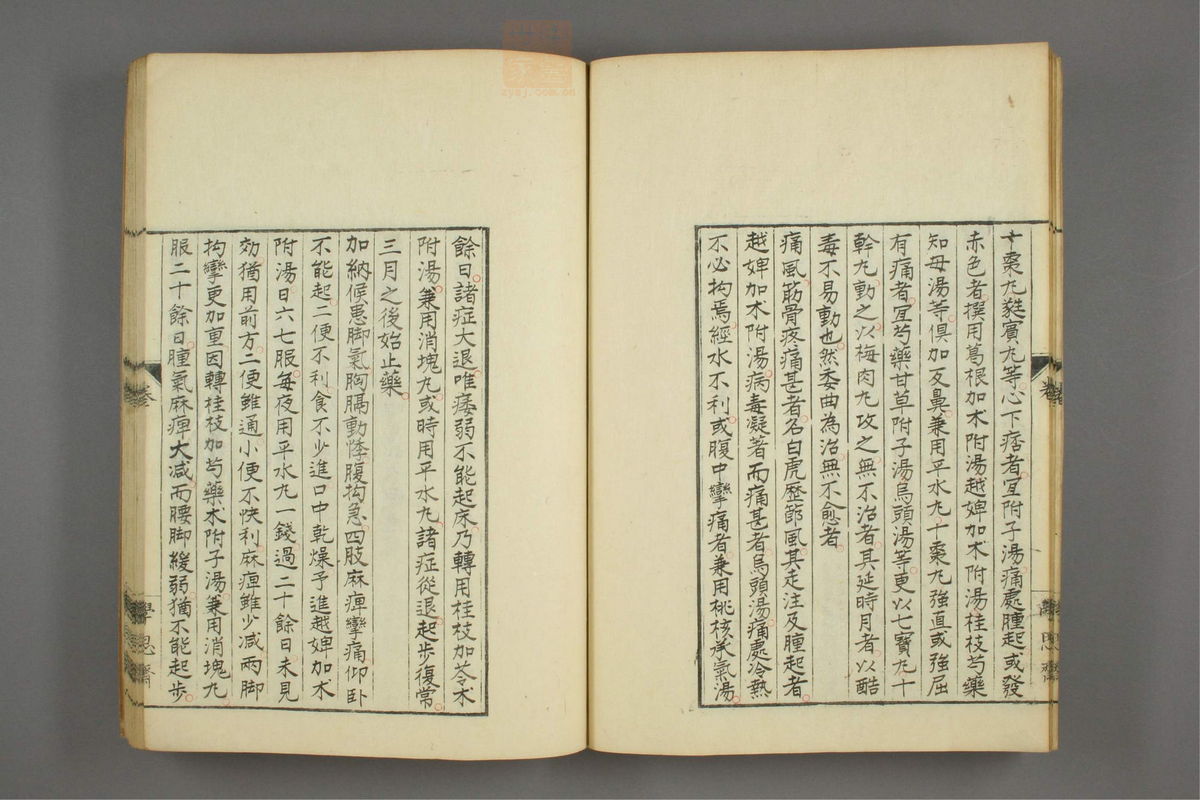 十棗丸蕤賓丸等心下痞者宜附子湯痛處腫起或發
赤色者撰用葛根加朮附湯越婢加朮附湯桂枝芍藥
知母湯等俱加反鼻兼用平水丸十棗丸強直或強屈
有痛者宜芍藥甘草附子湯烏頭湯等更以七寶丸十
幹丸動之以梅肉丸攻之無不治者其延時月者以酷
毒不易動也然委曲為治無不愈者
痛風筋骨疼痛甚者名白虎歷節風其走注及腫起者
越婢加朮附湯病毒凝著而痛甚者烏頭湯痛處冷熱
不必拘焉經水不利或腹中攣痛者兼用桃核承氣湯
餘日諸症大退唯痿弱不能起床乃轉用桂枝加苓朮
附湯兼用消塊丸或時用平水丸諸症從退起步復常
三月之後始止藥
加納候患脚氣胸膈動悸腹拘急四肢麻痺攣痛仰卧
不能起二便不利食不少進口中乾燥予進越婢加朮
附湯日六七服每夜用平水丸一錢過二十餘日未見
効猶用前方二便雖通小便不快利麻痺雖少減兩脚
拘攣更加重因轉桂枝加芍藥朮附子湯兼用消塊丸
服二十餘日腫氣麻痺大減而腰脚緩弱猶不能起步
學思齋
zysj.com.cn